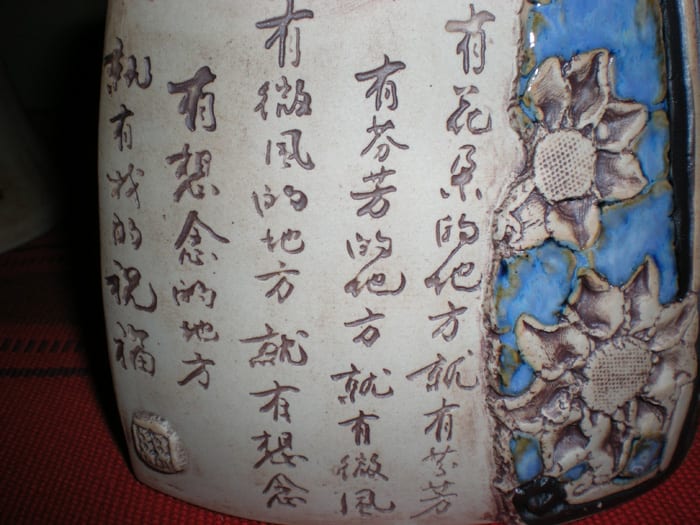 有花朵的地方就有芬芳
有芬芳的地方就有微風
有微風的地方就有想念
有想念的地方
就有我的祝福